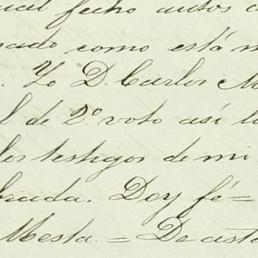 cual fecho autos
sado como está m
. Yo D. Carlos M
l de 2º voto así lo
los testigos de mi
brada. Doy fé =
Mesta. = De asta